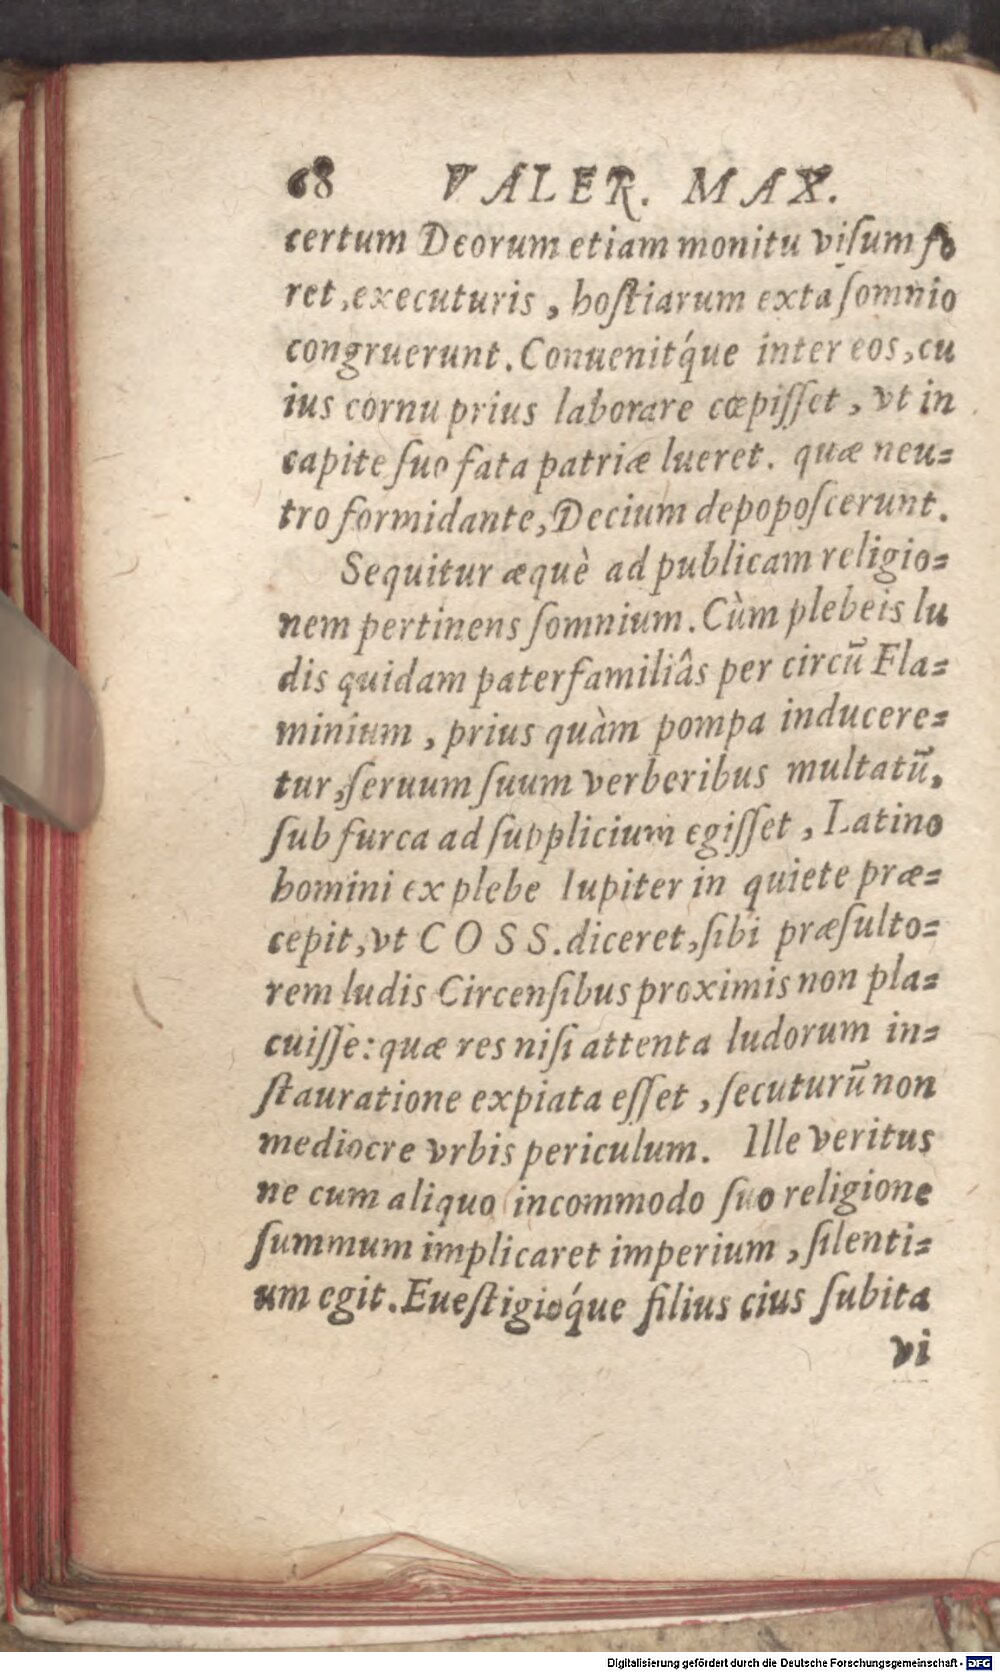 68 VALER. MAX.
certum Deorum etiam monitu viſum fo
ret, executuris, hoſtiarum exta ſomnio
congruerunt. Conuenitq́ue inter eos, cu
ius cornu prius laborare cœpiſſet, vt in
capite ſuo fata patriæ lueret. quæ neu=
tro formidante, Decium depopoſcerunt.
Sequitur æquè ad publicam religio=
nem pertinens ſomnium. Cùm plebeis lu
dis quidam paterfamiliâs per circū Fla=
minium, prius quàm pompa inducere=
tur, ſeruum ſuum verberibus multatū,
ſub furca ad ſupplicium egiſſet, Latino
homini ex plebe Iupiter in quiete præ=
cepit, vt COSS. diceret, ſibi præſulto=
rem ludis Circenſibus proximis non pla=
cuiſſe: quæ res niſi attenta ludorum in=
ſtauratione expiata eſſet, ſecuturū non
mediocre vrbis periculum. Ille veritus
ne cum aliquo incommodo ſuo religione
ſummum implicaret imperium, ſilenti=
um egit. Eueſtigioq́ue filius eius ſubita
vi
Digitalisierung gefördert durch die Deutsche Forschungsgemeinschaft - DFG